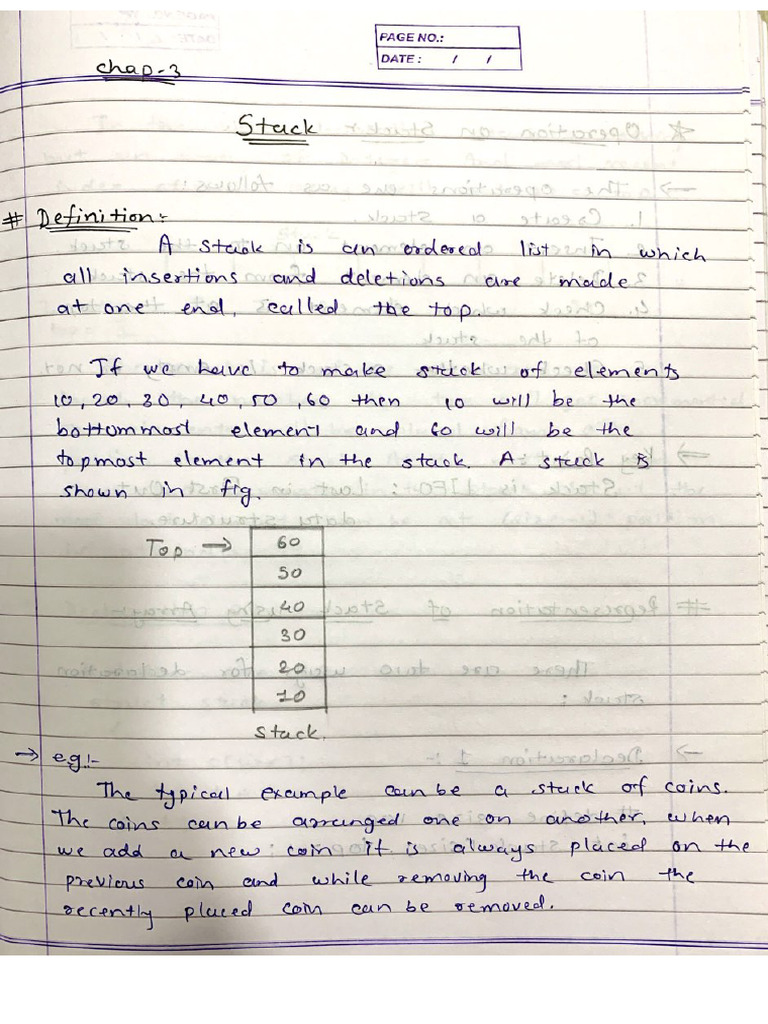 PAGE NO.:
DATE : / /
Chap-3
Stack
# Definition:-
A stack is an ordered list in which
all insertions and deletions are made
at one end, called the top.
If we have to make stack of elements
10, 20, 30, 40, 50, 60 then 10 will be the
bottommost element and 60 will be the
topmost element in the stack. A stack is
shown in fig.
Top → 60
50
40
30
20
10
Stack.
→ e.g:-
The typical example can be a stack of coins.
The coins can be arranged one on another, when
we add a new coin it is always placed on the
previous coin and while removing the coin the
recently placed coin can be removed.